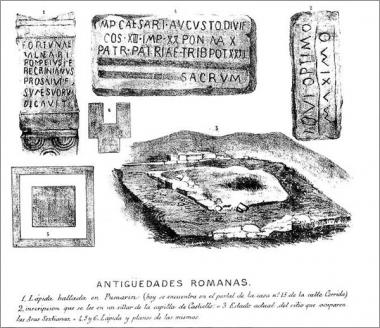 1
FORTVNAE
BALNEARI
POMPEIVS PE
REGRINIANVS
PRO SALVTE
SVA ET SVORV
DICAVIT
2
IMP CAESARI AVGVSTO DIVI F
COS XIII IMP XX PON MAX
PATR PATRIAE TRIB POT XXXII
SACRVM
IOVI OPTIMO
MAXIMO
4
5
3
ANTIGÜEDADES ROMANAS.
1. Lápida hallada en Pumarín (hoy se encuentra en el portal de la casa nº 15 de la calle Corrida)
2, inscripcion que se lee en un altar de la capilla de Castiello = 3. Estado actual del sitio que ocuparon
las Aras Sextianas. = 4, 5 y 6. Lápida y planos de las mismas.